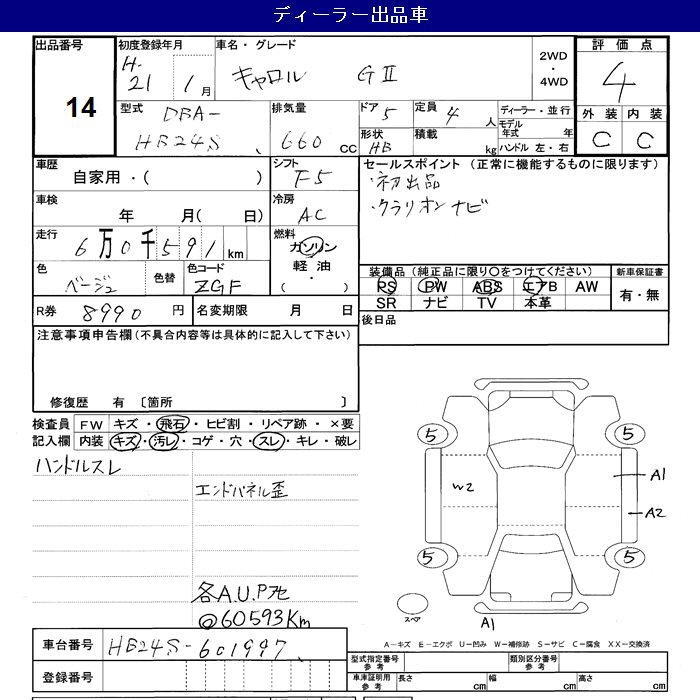 ディーラー出品車
出品番号 14
初度登録年月 H-21 1月
車名・グレード キャロル GⅡ
2WD・4WD
評価点 4
外装 C 内装 C
型式 DBA-HB24S
排気量 660 CC
ドア 5 定員 4人
形状 HB 積載 kg
ディーラー・並行
モデル年式 年
ハンドル 左・右
車歴 自家用・( )
シフト F5
セールスポイント (正常に機能するものに限ります)
・初出品
・クラリオンナビ
車検 年 月( 日)
冷房 AC
走行 6万0千591km
燃料 ガソリン 軽油・( )
色 ベージュ 色替 色コード ZGF
装備品(純正品に限り〇をつけてください)
PS PW ABS エアB AW
SR ナビ TV 本革
新車保証書 有・無
R券 8990円 名変期限 月 日
後日品
注意事項申告欄(不具合内容等は具体的に記入して下さい)
修復歴 有 〔箇所 〕
検査員記入欄
FW キズ・飛石・ヒビ割・リペア跡・×要
内装 キズ・汚レ・コゲ・穴・スレ・キレ・破レ
ハンドルスレ
エンドパネル歪
各A.U.Pフセ
@60593Km
5 5
W2 A1
A2
5 5
スペア
A1
A-キズ E-エクボ U-凹み W-補修跡 S-サビ C-腐食 XX-交換済
車台番号 HB24S-601997
登録番号
型式指定番号 参考 類別区分番号 参考
車庫証明用 参考 長さ cm 幅 cm 高さ cm